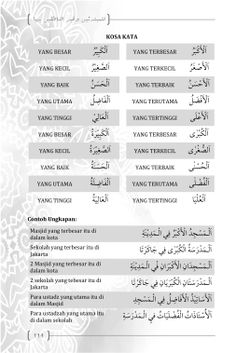 KOSA KATA
YANG BESAR الْكَبِيْرُ YANG TERBESAR الْأَكْبَرُ
YANG KECIL الصَّغِيْرُ YANG TERKECIL الْأَصْغَرُ
YANG BAIK الْحَسَنُ YANG TERBAIK الْأَحْسَنُ
YANG UTAMA الْفَاضِلُ YANG TERUTAMA الْأَفْضَلُ
YANG TINGGI الْعَالِي YANG TERTINGGI الْأَعْلَى
YANG BESAR الْكَبِيْرَةُ YANG TERBESAR الْكُبْرَى
YANG KECIL الصَّغِيْرَةُ YANG TERKECIL الصُّغْرَى
YANG BAIK الْحَسَنَةُ YANG TERBAIK الْحُسْنَى
YANG UTAMA الْفَاضِلَةُ YANG TERUTAMA الْفُضْلَى
YANG TINGGI الْعَالِيَةُ YANG TERTINGGI الْعُلْيَا
Contoh Ungkapan:
Masjid yang terbesar itu di
dalam kota
الْمَسْجِدُ الْأَكْبَرُ فِي الْمَدِيْنَةِ
Sekolah yang terbesar itu di
Jakarta
الْمَدْرَسَةُ الْكُبْرَى فِي جَاكَرْتَا
2 Masjid yang terbesar itu di
dalam kota
الْمَسْجِدَانِ الْأَكْبَرَانِ فِي الْمَدِيْنَةِ
2 sekolah yang terbesar itu di
Jakarta
الْمَدْرَسَتَانِ الْكُبْرَيَانِ فِي جَاكَرْتَا
Para ustadz yang utama itu di
dalam Masjid
الْأَسَاتِيْذُ الْأَفَاضِلُ فِي الْمَسْجِدِ
Para ustadzah yang utama itu
di dalam sekolah
الْأُسْتَاذَاتُ الْفُضْلَيَاتُ فِي الْمَدْرَسَةِ